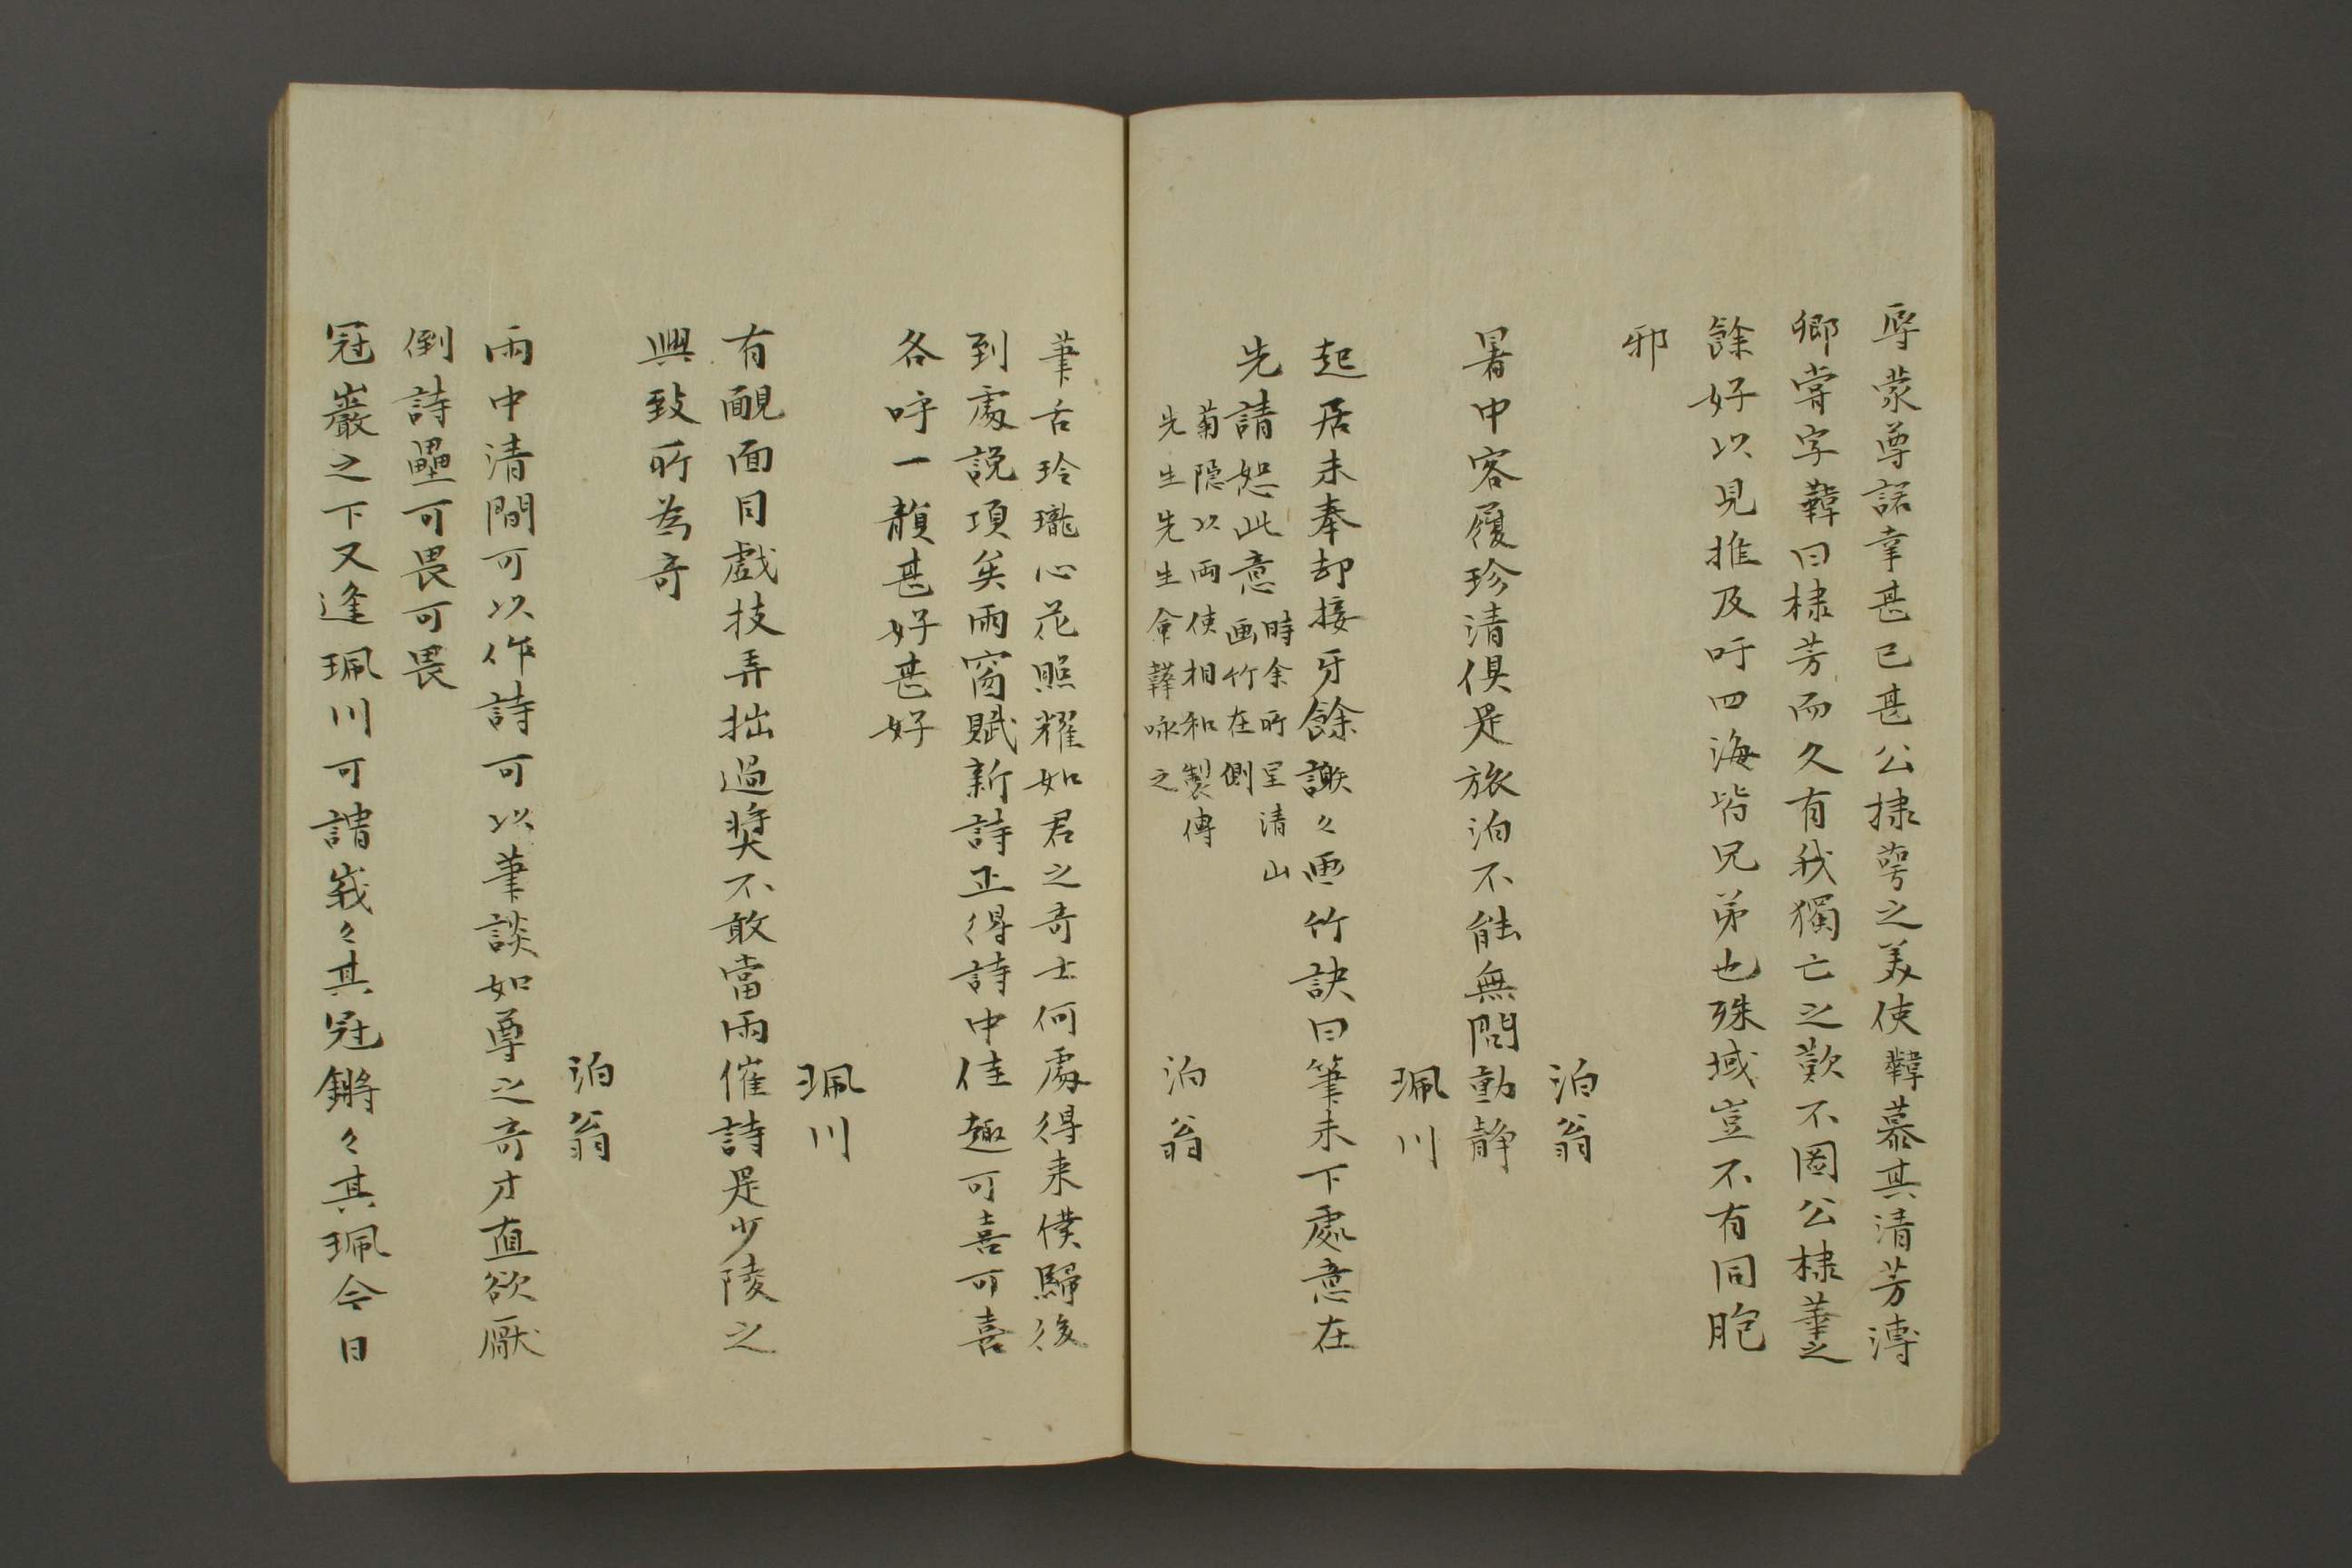 辱蒙尊諾幸甚已甚公棣萼之美使韡慕其清芳溥
卿嘗字韡曰棣芳而久有我獨亡之歎不圖公棣華之
餘好以見推及吁四海皆兄弟也殊域豈不有同胞
邪
泊翁
暑中客履珍清俱是旅泊不能無問動静
珮川
起居未奉却接牙餘謝々画竹訣曰筆未下處意在
先請恕此意
時余所呈清山
画竹在側
菊隠以両使相和製傳
先生先生命韡咏之
泊翁
筆舌玲瓏心花照耀如君之奇士何處得来僕歸後
到處説項矣雨窗賦新詩正得詩中佳趣可喜可喜
各呼一韻甚好甚好
珮川
有靦面目戯技弄拙過奨不敢當雨催詩是少陵之
興致所為奇
泊翁
雨中清間可以作詩可以筆談如尊之奇才直欲厭
倒詩壘可畏可畏
冠巖之下又逢珮川可謂峩々其冠鏘々其珮今日